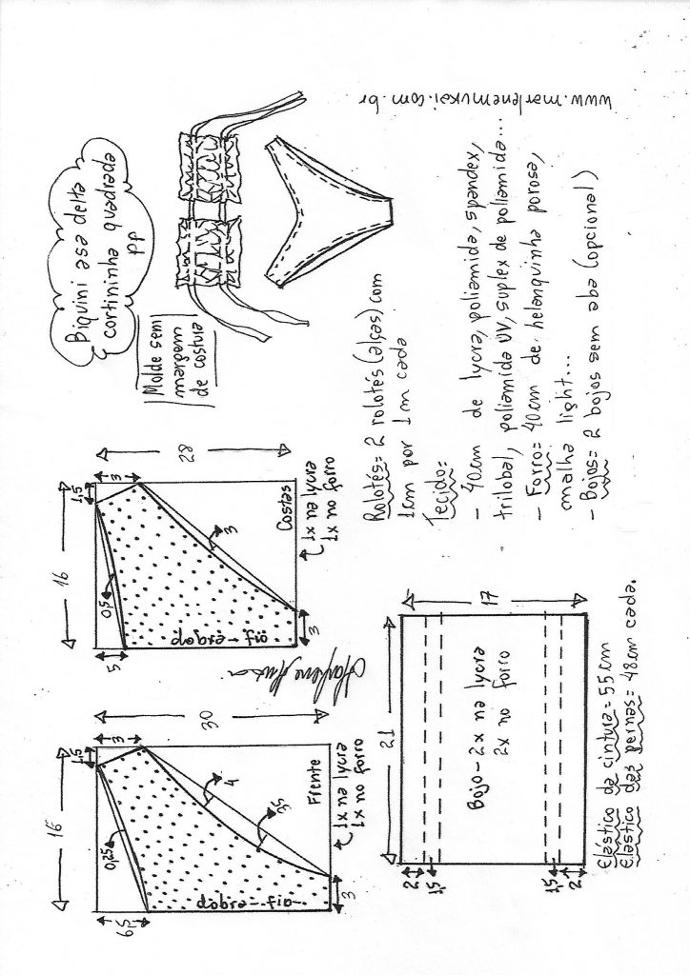 Biquini asa delta
cortininha quadrada
PP
Molde sem
margem
de costura
www.marlenemukai.com.br
16
1,5
3
0,25
6,5
4
3,5
30
3
dobra - fio
Frente
1x na lycra
1x no forro
16
1,5
3
0,5
5
3
28
3
dobra - fio
Costas
1x na lycra
1x no forro
Marlene Mukai
21
17
2
1,5
1,5
2
Bojo - 2x na lycra
2x no forro
Elástico da cintura = 55cm
Elástico das pernas = 48cm cada.
Rolotés = 2 rolotés (alças) com
1cm por 1m cada
Tecido:
- 40cm de lycra, poliamida, spandex,
trilobal, poliamida UV, suplex de poliamida...
- Forro = 40cm de helanquinha porosa,
malha light...
- Bojos = 2 bojos sem aba (opcional)